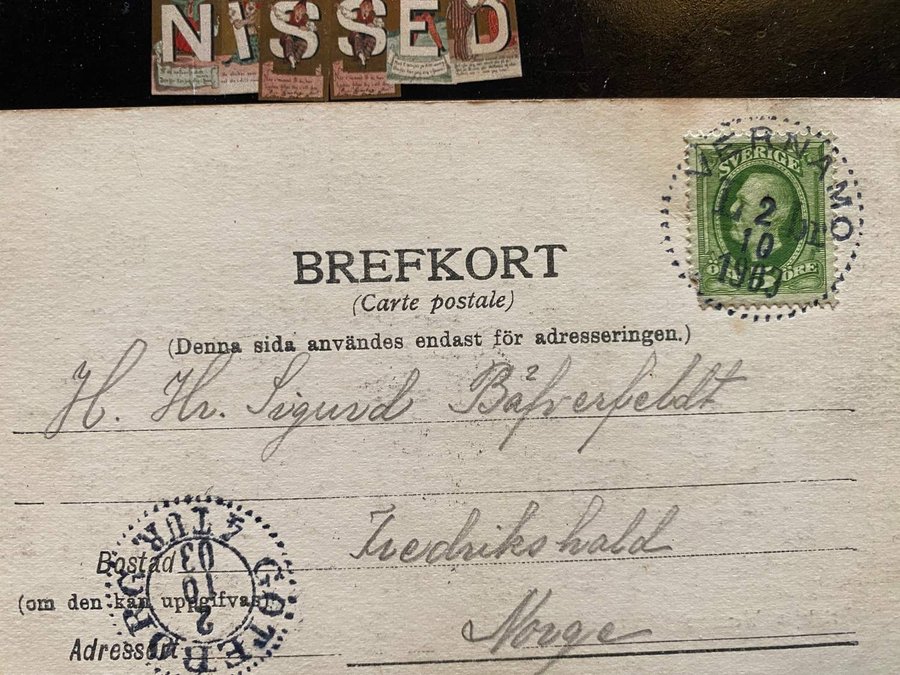 NISSED
VERNAMO
SVERIGE
2
10
1903
ÖRE
BREFKORT
(Carte postale)
(Denna sida användes endast för adresseringen.)
H. Hr. Sigurd Båfverfeldt
Fredrikshald
Norge
Bostad
(om den kan uppgifvas)
Adressort
GÖTEBORG
4 TUR
2
10
03